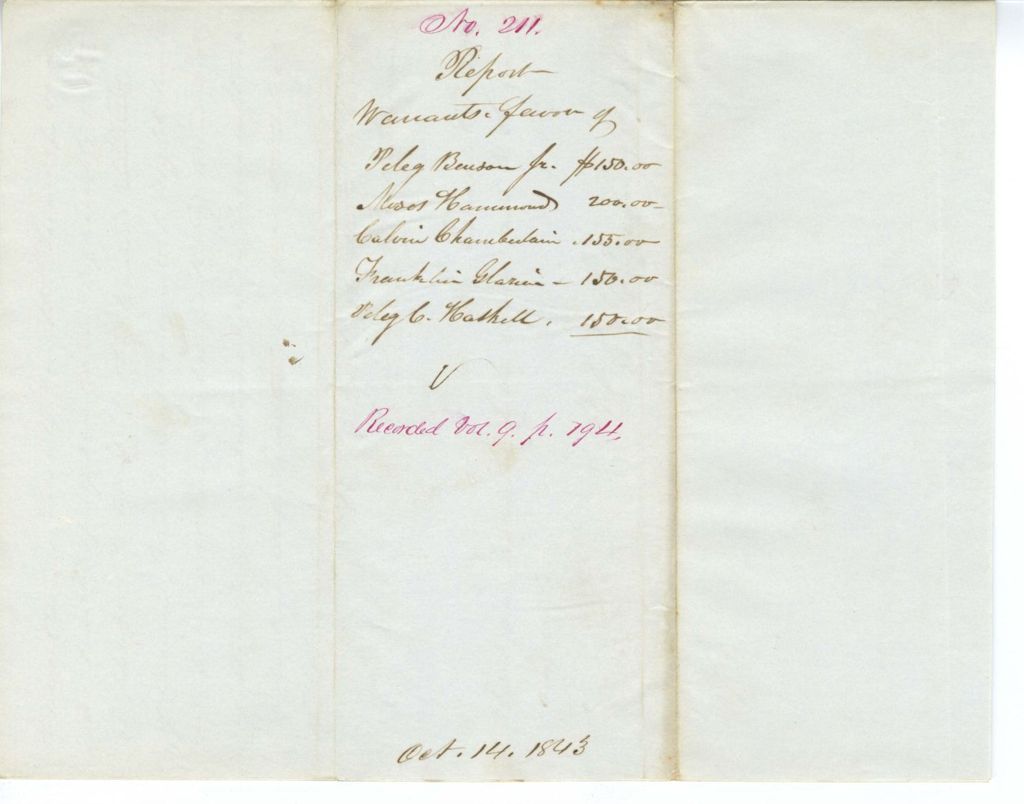 No. 211.
Report
Warrants favor of
Peleg Benson Jr. $150.00
Moses Hammond 200.00
Calvin Chamberlain . 155.00
Franklin Glazier - 150.00
Peleg C. Haskell . 150.00
Recorded Vol. 9. p. 194.
Oct. 14. 1843